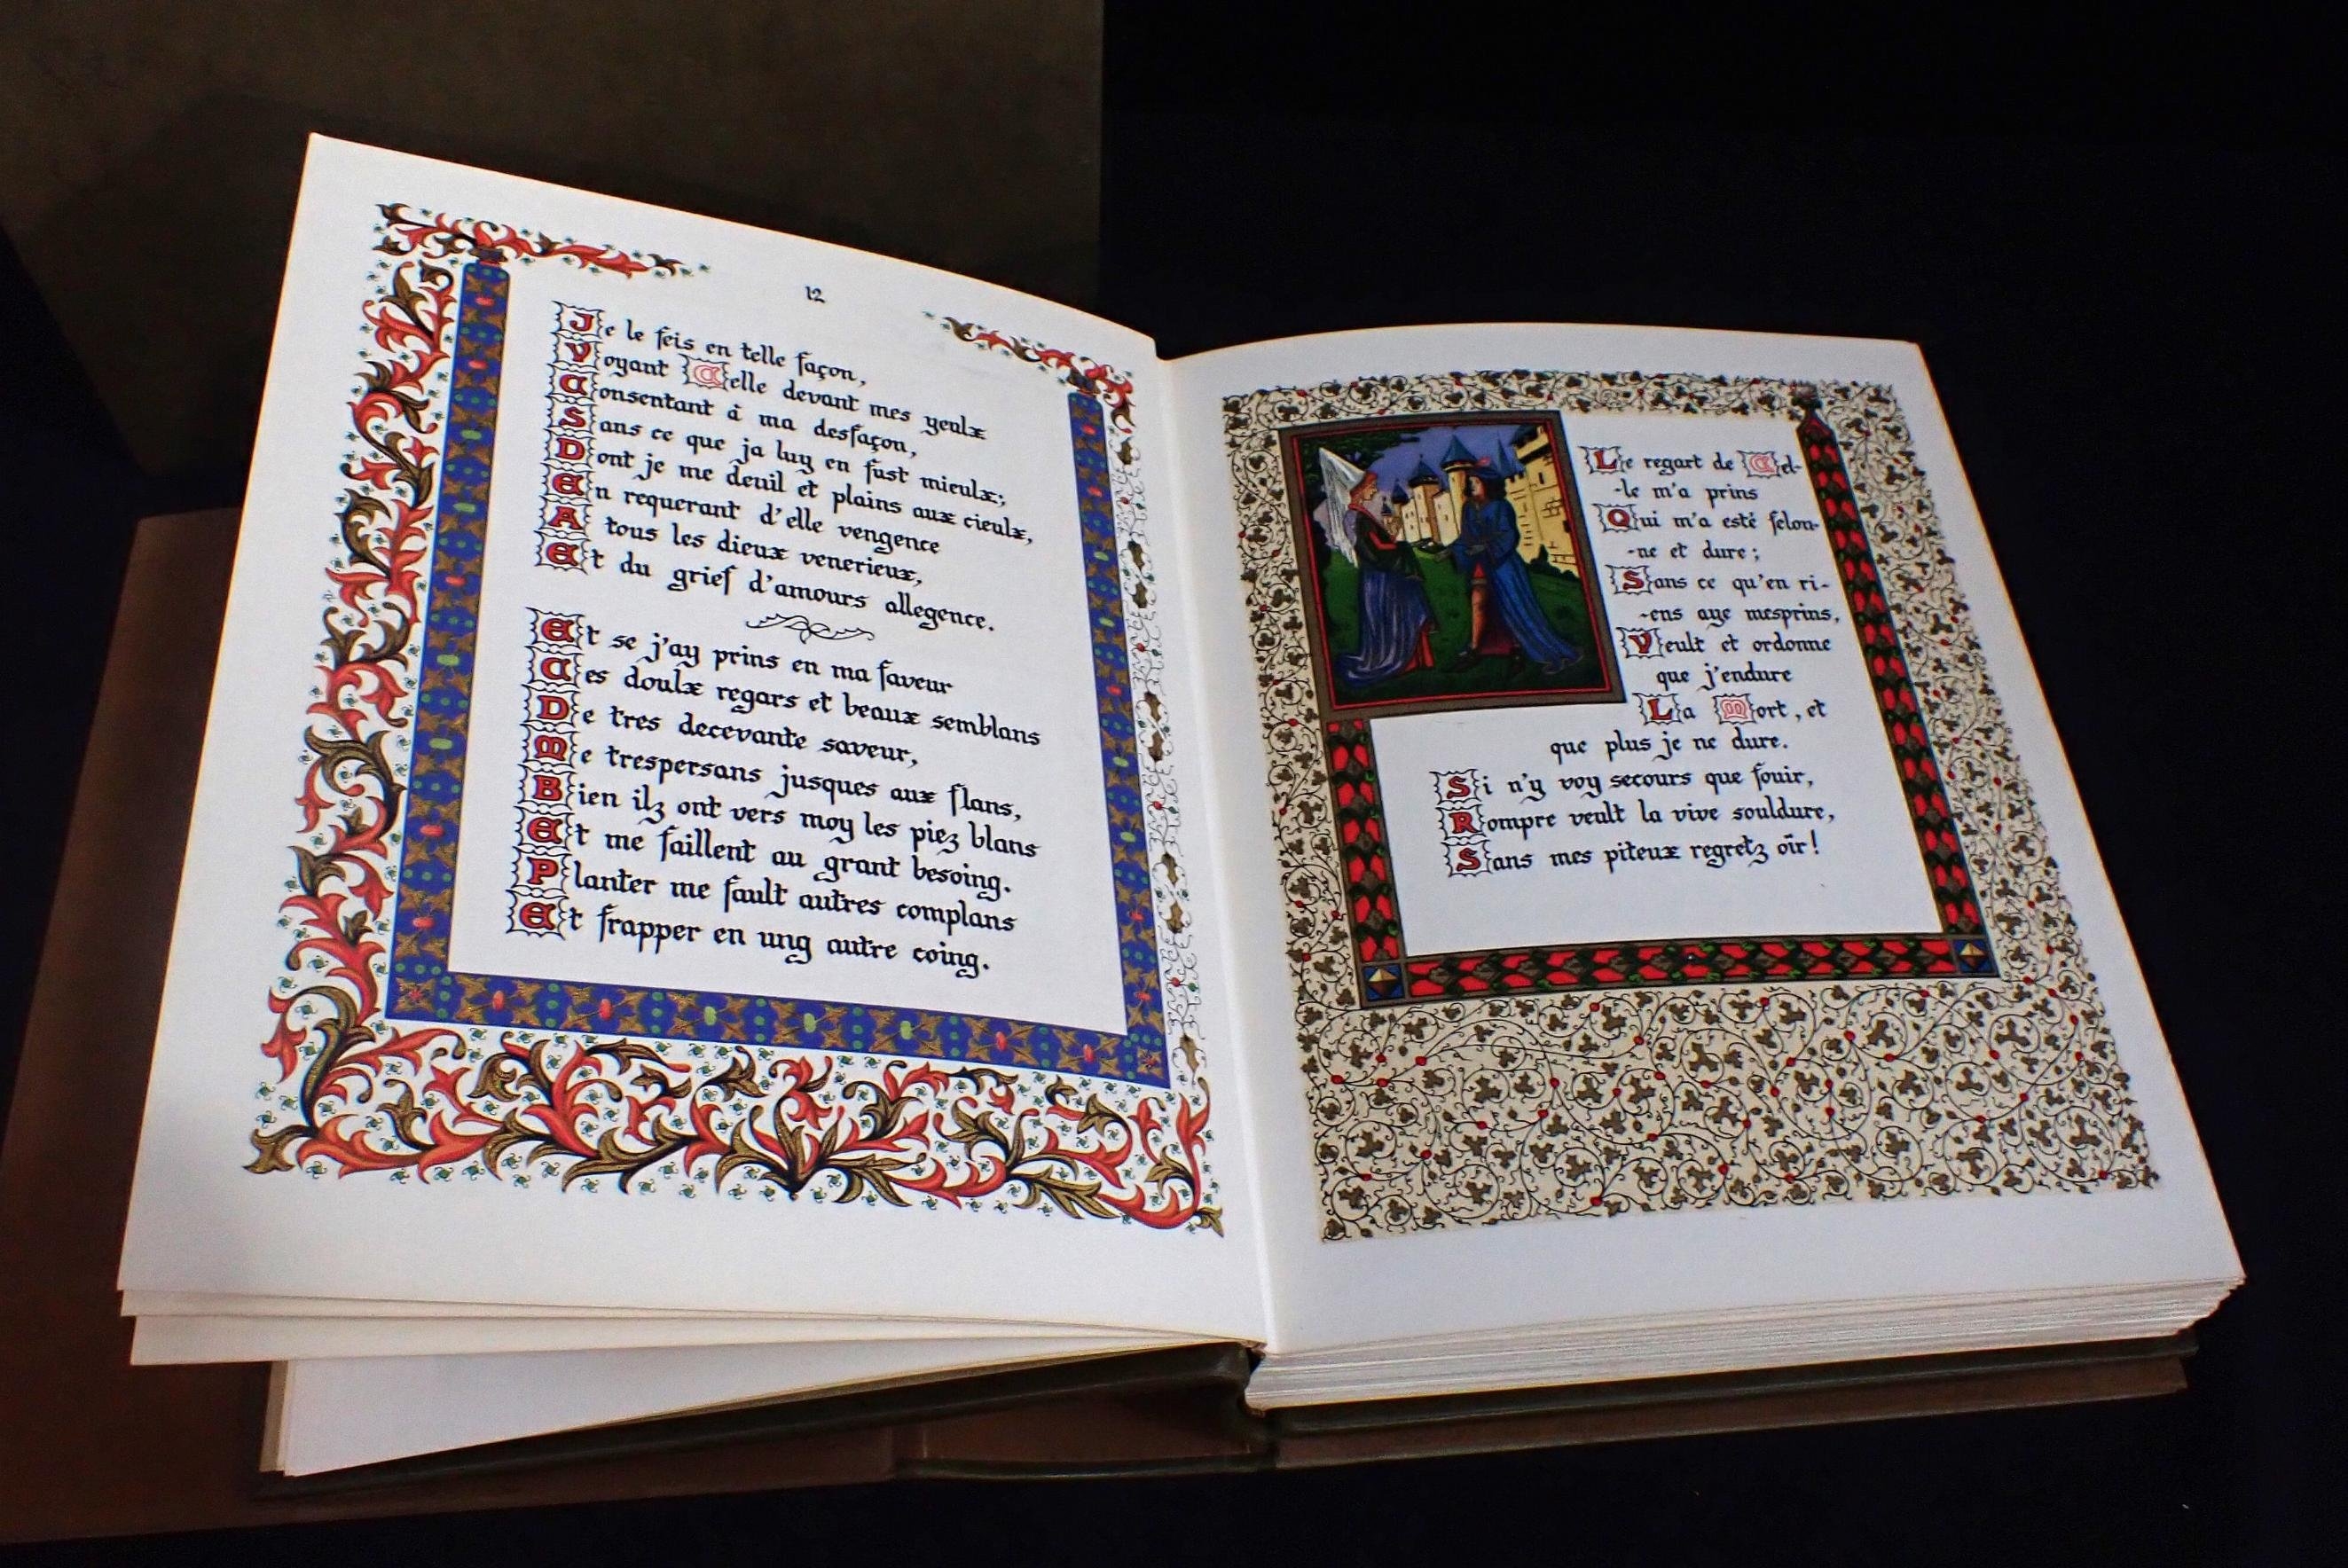 12
Je le feis en telle façon,
Voyant Celle devant mes yeulx
Consentant à ma desfaçon,
Sans ce que ja luy en fust mieulx;
Dont je me deuil et plains aux cieulx,
En requerant d'elle vengence
A tous les dieux venerieux,
Et du grief d'amours allegence.
Et se j'ay prins en ma faveur
Ces doulx regars et beaux semblans
De tres decevante saveur,
Me trespersans jusques aux flans,
Bien ilz ont vers moy les piez blans
Et me faillent au grant besoing.
Planter me fault autres complans
Et frapper en ung autre coing.
Le regart de Cel-
-le m'a prins
Qui m'a esté felon-
-ne et dure;
Sans ce qu'en ri-
-ens aye mesprins,
Veult et ordonne
que j'endure
La Mort, et
que plus je ne dure.
Si n'y voy secours que fouir,
Rompre veult la vive souldure,
Sans mes piteux regretz oïr!